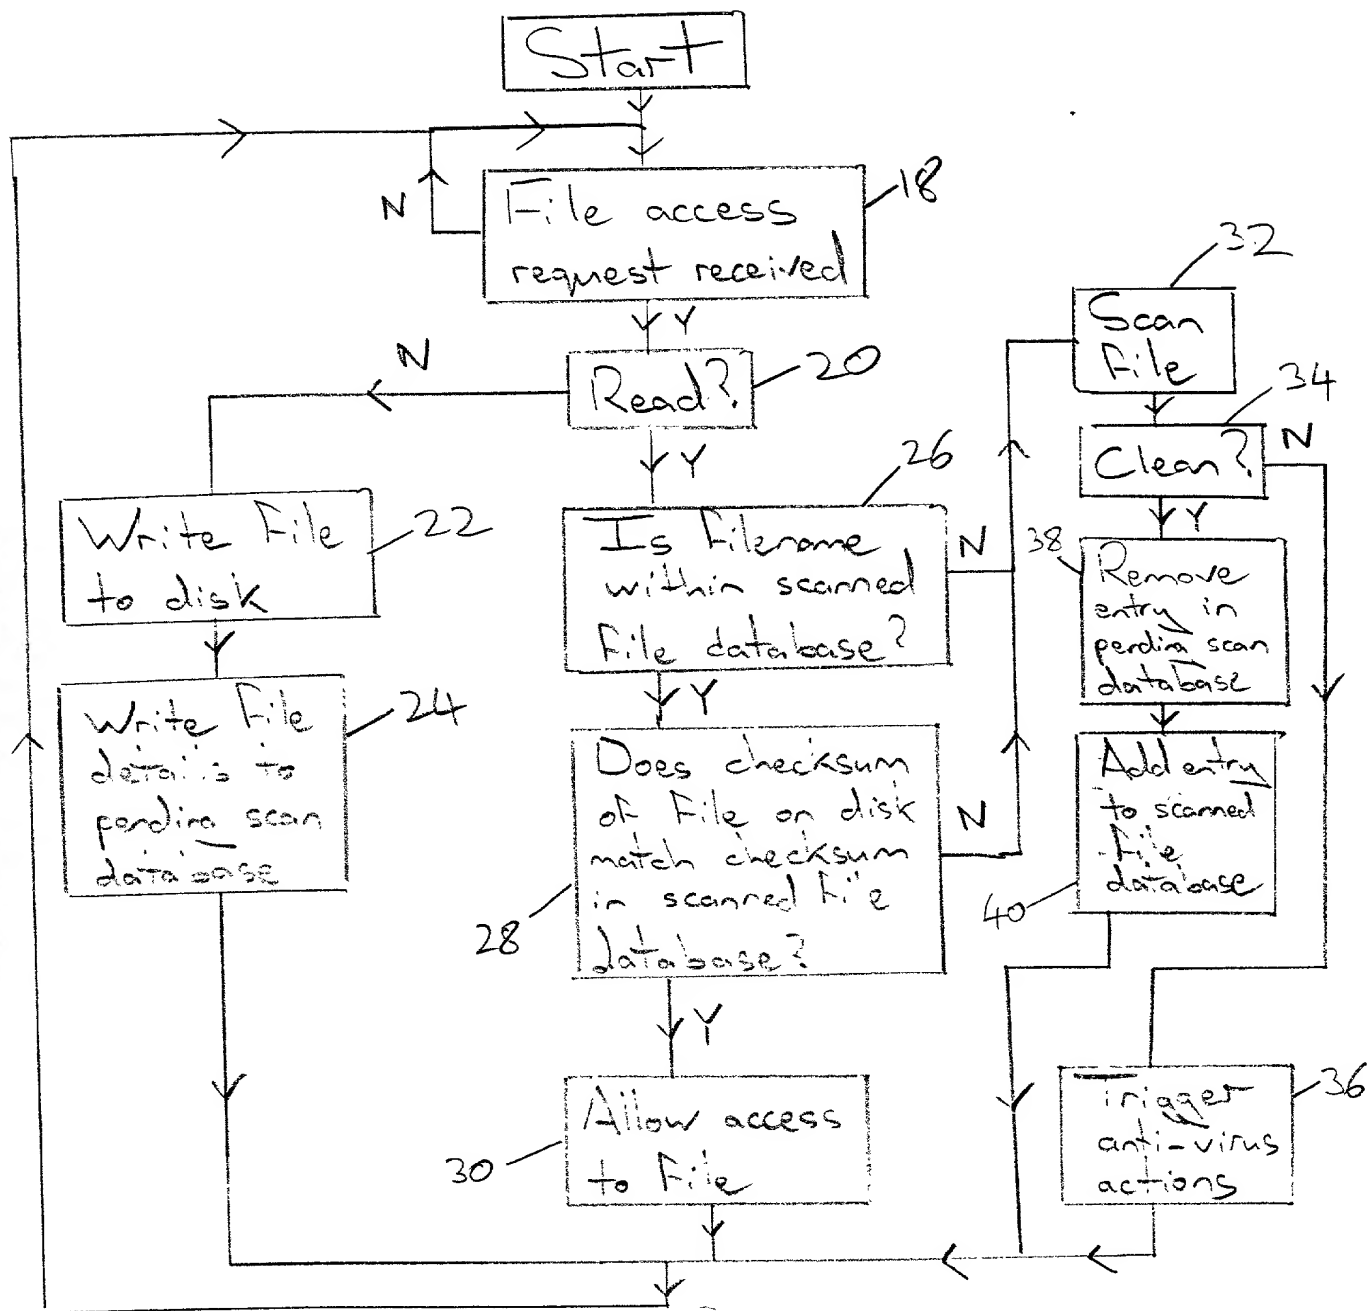 Start
N
File access
request received
18
Y
N
Read?
20
Y
Write File
to disk
22
Write File
details to
pending scan
database
24
Is Filename
within scanned
File database?
26
N
Y
Does checksum
of File on disk
match checksum
in scanned File
database?
28
N
Y
Allow access
to File
30
Scan
File
32
Clean?
34
N
Y
38
Remove
entry in
pending scan
database
Add entry
to scanned
File
database
40
Trigger
anti-virus
actions
36